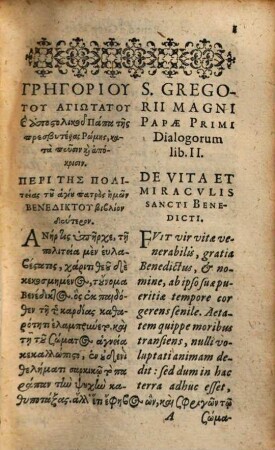 ΓΡΗΓΟΡΙΟΥ
ΤΟΥ ΑΓΙΩΤΑΤΟΥ
Ἀποστολικοῦ Πάπα τῆς
πρεσβυτέρας Ῥώμης, κα-
τὰ πεῦσιν ἐ ἀπό-
κρισιν.
ΠΕΡΙ ΤΗΣ ΠΟΛΙ-
τείας τοῦ ἁγίου πατρὸς ἡμῶν
ΒΕΝΕΔΙΚΤΟΥ βιβλίον
δεύτερον.
ΑΝήρ τις ὑπῆρχε, τῇ
πολιτείᾳ μὲν εὐλα-
βέστατος, χάριτι θεοῦ δὲ κε-
κοσμημένος, τοὔνομα
Βενέδικτος, ὃς ἐκ παιδό-
θεν τῇ τῆς καρδίας καθα-
ρότητι ἐλαμπρύνετο, καὶ
τῇ τοῦ σώματος ἁγνείᾳ
κεκαλλώπιστο, ἐν οὐδενὶ
θελήματι σαρκικῷ τὸ πα-
ράπαν τὴν ψυχὴν
καθυποτάξας. ἀλλ' ἔτι ἔφηβος ὢν, καὶ σφριγῶντος
S. GREGO-
RII MAGNI
PAPÆ PRIMI
Dialogorum
lib. II.
DE VITA ET
MIRACVLIS
SANCTI BENE-
DICTI.
FVIT vir vitæ ve-
nerabilis, gratia
Benedictus, & no-
mine, ab ipso suæ pu-
eritiæ tempore cor
gerens senile. Aeta-
tem quippe moribus
transiens, nulli vo-
luptati animam de-
dit: sed dum in hac
terra adhuc esset,
A
σώμα-